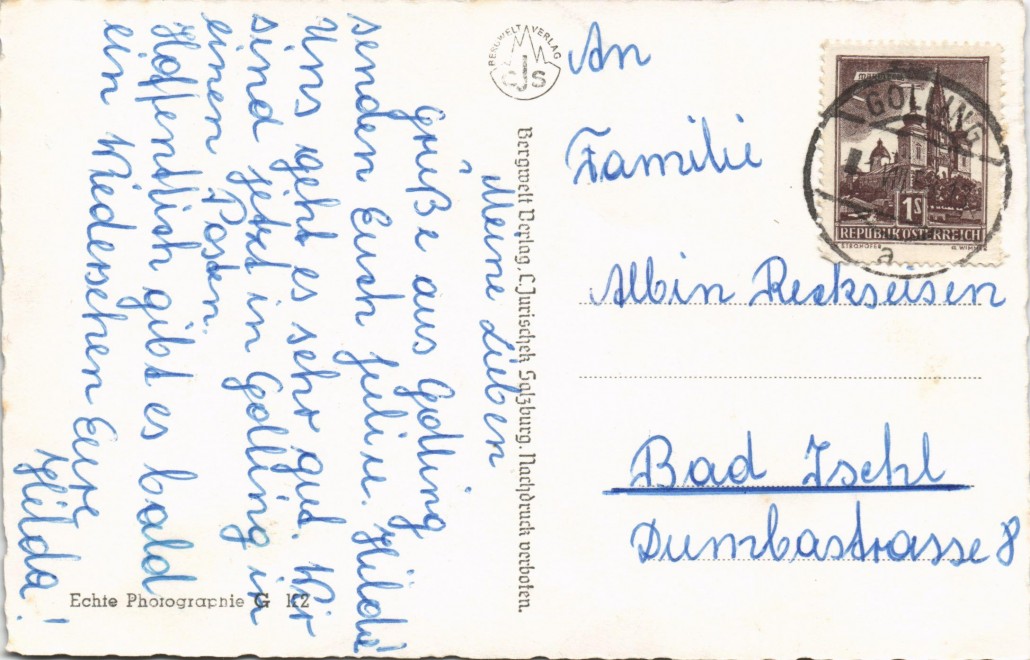 Meine Lieben
Grüße aus Golling
senden Euch Juli u. Hilda!
Uns geht es sehr gut. Wir
sind jetzt in Golling in
einen Posten.
Hoffentlich gibt es bald
ein Wiedersehen Eure
Hilda!
Echte Photographie G KZ
Bergwelt Verlag, C. Jurischek Salzburg. Nachdruck verboten.
BERGWELT VERLAG
CJS
An
Familie
Albin Reckseisen
Bad Ischl
Dumbastrasse 8
GOLLING
a
1S
REPUBLIK ÖSTERREICH